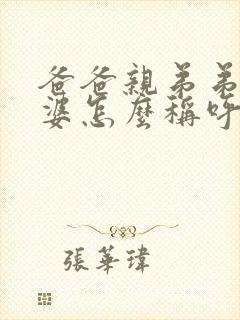 爸爸親弟弟
婆怎麼稱呼
張華瑋